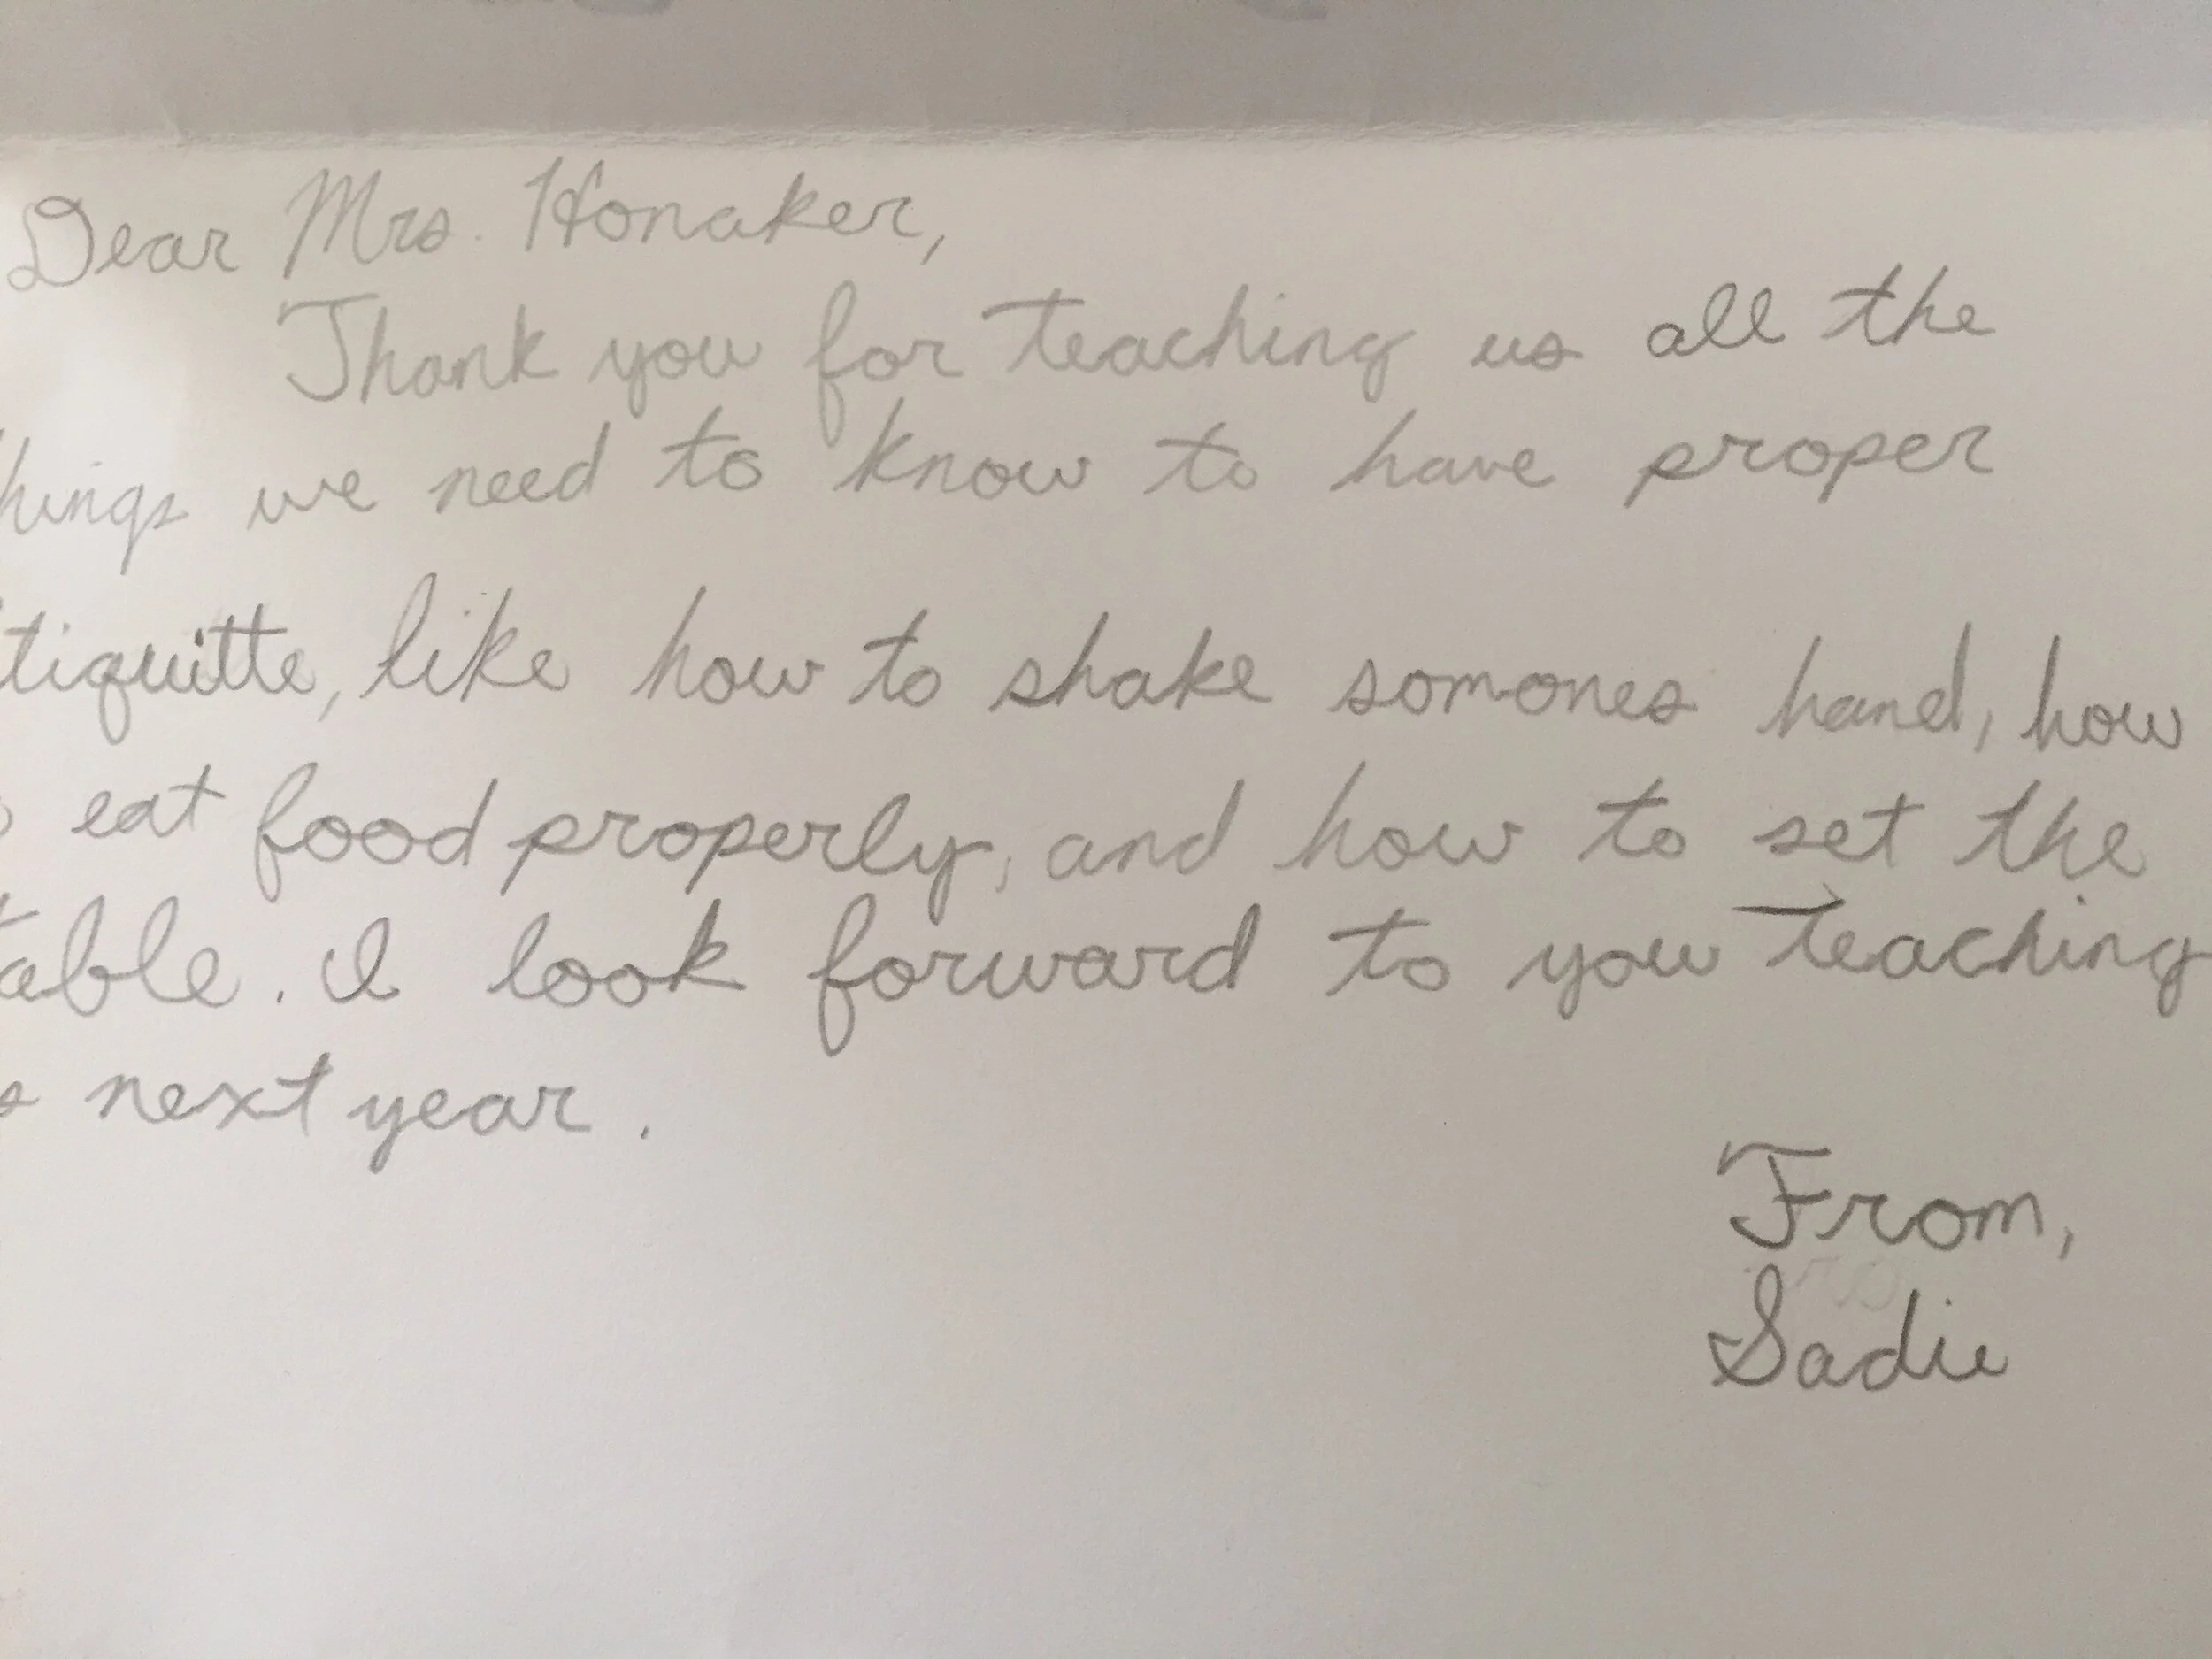 Dear Mrs. Honaker,
Thank you for teaching us all the
hings we need to know to have proper
tiquitte, like how to shake somones hand, how
o eat food properly, and how to set the
table. I look forward to you teaching
s next year.
From,
Sadie